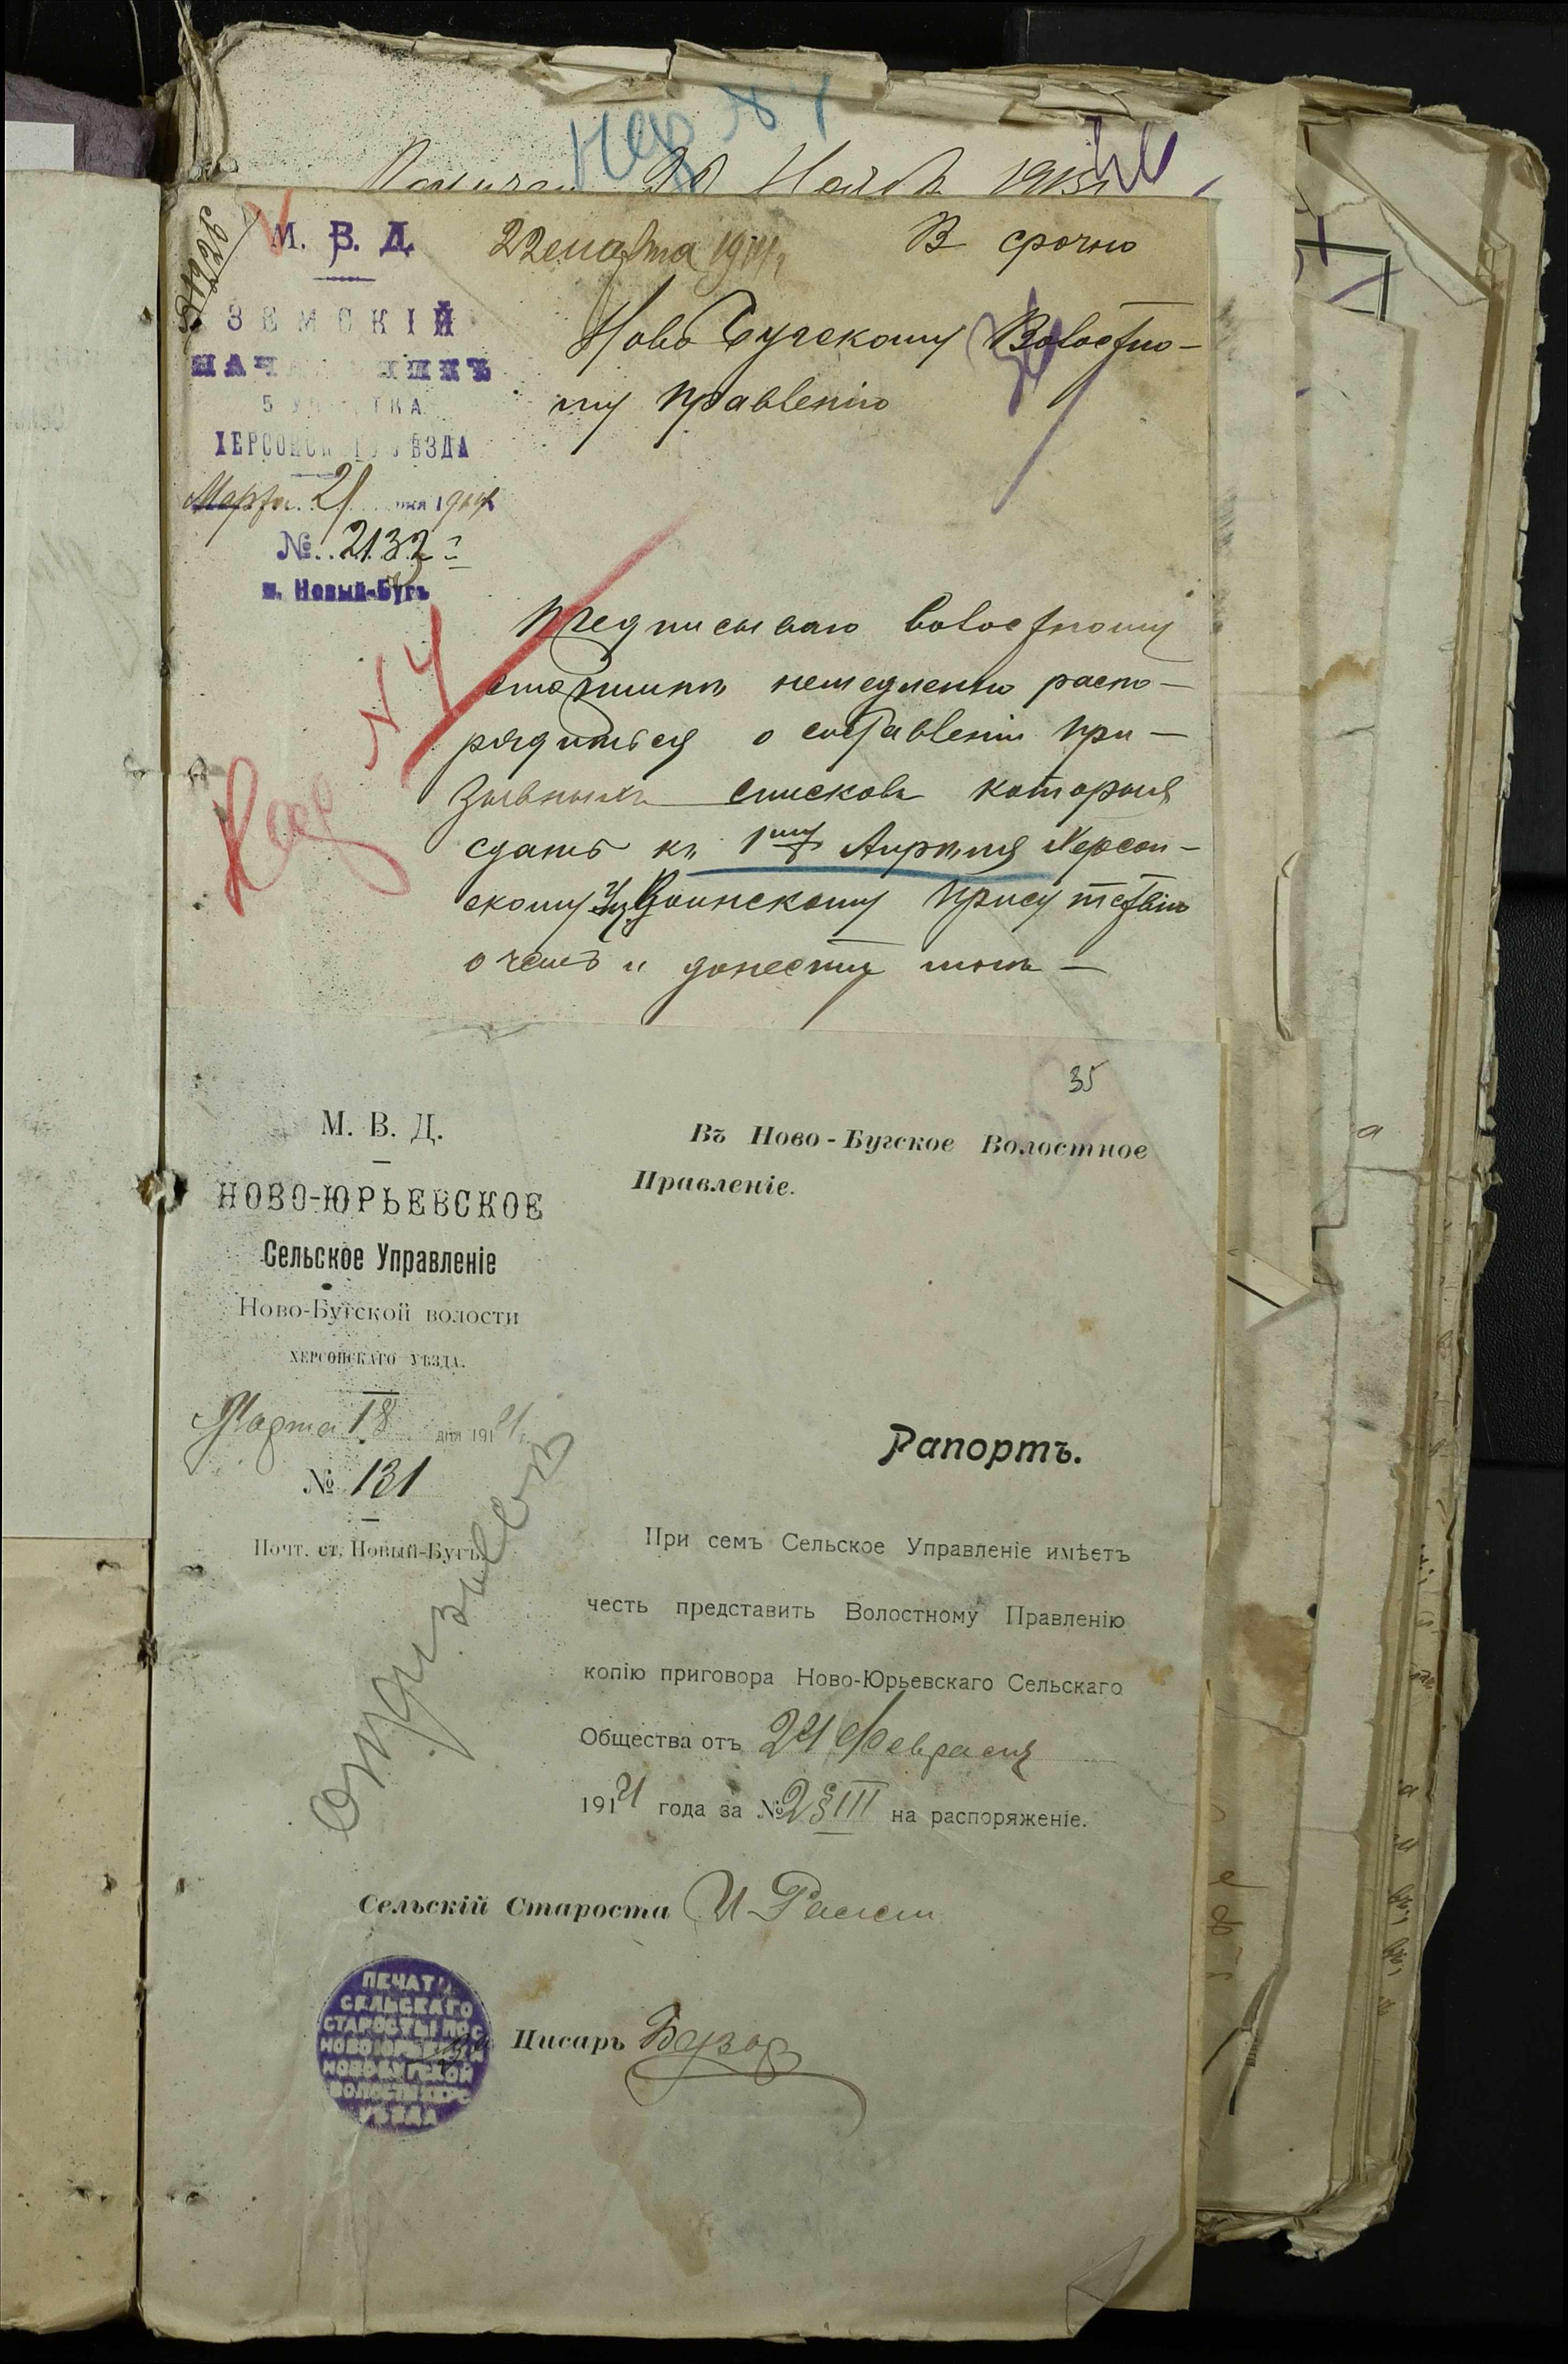 Нар № 1
Получен 20 Нояб 1913 г.
М. В. Д.
22 марта 1914 г.
В срочно
ЗЕМСКІЙ
НАЧАЛЬНИКЪ
5 УЧАСТКА
ХЕРСОНСКАГО УѢЗДА
Марта 21 дня 1914
№ 2132
м. Новый-Бугъ
Ново Бугскому Волостно-
му Правленію
Предписываю Волостному
старшинѣ немедленно распо-
рядиться о составленіи при-
зывныхъ списковъ которыя
сдать къ 1му Апрѣля Херсон-
скому Уѣз Воинскому присутствію
о чемъ и донести мнѣ
35
М. В. Д.
НОВО-ЮРЬЕВСКОЕ
Сельское Управленіе
Ново-Бугской волости
ХЕРСОНСКАГО УѢЗДА.
Марта 18 дня 1914 г.
№ 131
Почт. ст. Новый-Бугъ.
Въ Ново-Бугское Волостное
Правленіе.
Рапортъ.
При семъ Сельское Управленіе имѣетъ
честь представить Волостному Правленію
копію приговора Ново-Юрьевскаго Сельскаго
Общества отъ 24 Февраля
1914 года за № 2 § III на распоряженіе.
Сельскій Староста И
Писарь
ПЕЧАТЬ
СЕЛЬСКАГО
СТАРОСТЫ ПОС
НОВОЮРЬЕВКИ
НОВОБУГСКОЙ
ВОЛОСТИ ХЕРС
УѢЗДА